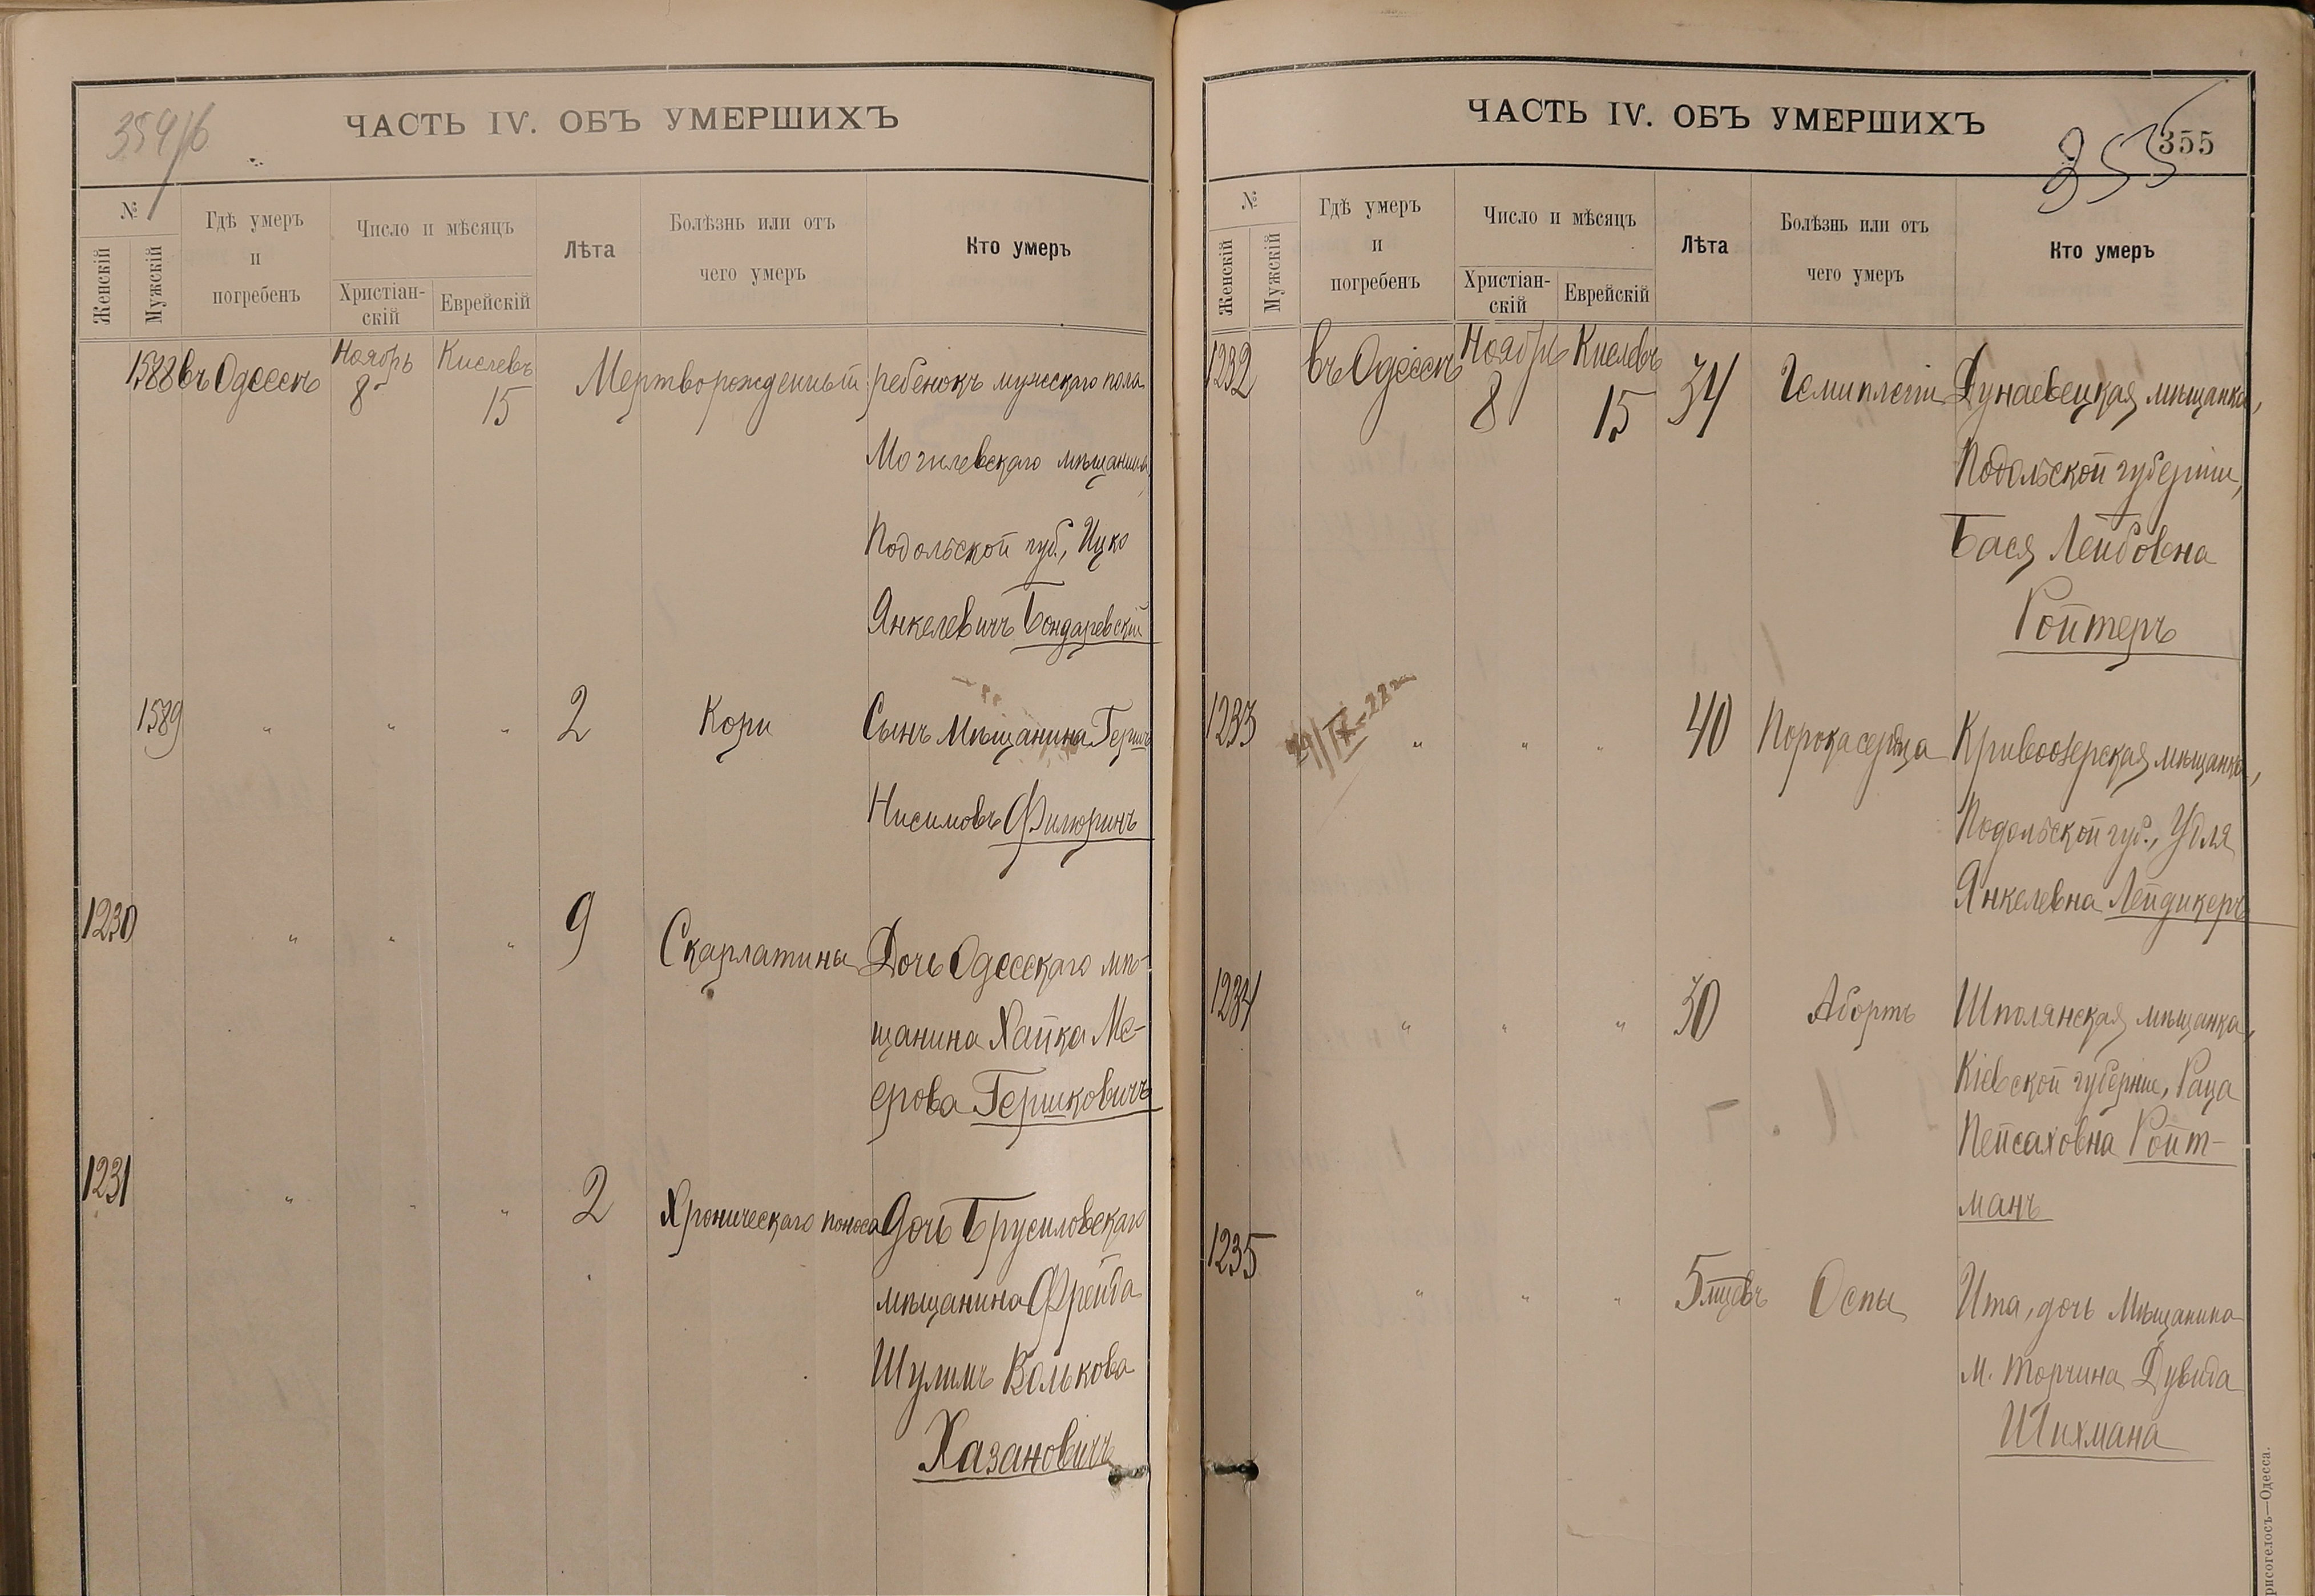 359/6
ЧАСТЬ IV. ОБЪ УМЕРШИХЪ
№
Женскій
Мужскій
Гдѣ умеръ
и
погребенъ
Число и мѣсяцъ
Христіан-
скій
Еврейскій
Лѣта
Болѣзнь или отъ
чего умеръ
Кто умеръ
1588 въ Одессѣ Ноябрь 8 Кислевъ 15 Мертворожденный ребенокъ мужескаго пола
Могилевскаго мѣщанина,
Подольской губ., Ицко
Янкелевичъ Бондаревскій
1589 " " " 2 Кори Сынъ мѣщанина Гершъ
Нисимовъ Филюринъ
1230 " " " 9 Скарлатина Дочь Одесскаго мѣ-
щанина Хайка Ме-
ерова Гершковичъ
1231 " " " 2 Хроническаго поноса Дочь Брусиловскаго
мѣщанина Фрейда
Шулимъ Волькова
Хазановичъ
ЧАСТЬ IV. ОБЪ УМЕРШИХЪ
355
355
№
Женскій
Мужскій
Гдѣ умеръ
и
погребенъ
Число и мѣсяцъ
Христіан-
скій
Еврейскій
Лѣта
Болѣзнь или отъ
чего умеръ
Кто умеръ
1232 въ Одессѣ Ноябрь 8 Кислевъ 15 34 Гемиплегіи Дунаевецкая мѣщанка,
Подольской губерніи,
Бася Лейбовна
Ройтеръ
1233 29/IX-22 " " " 40 Порока сердца Кривоозерская мѣщанка,
Подольской губ., Удля
Янкелевна Лейдикеръ
1234 " " " 30 Абортъ Шполянская мѣщанка,
Кіевской губерніи, Раца
Пейсаховна Ройт-
манъ
1235 " " " 5 мцевъ Оспы Ита, дочь мѣщанина
м. Торчина Дувида
Шихмана
рисогелосъ—Одесса.